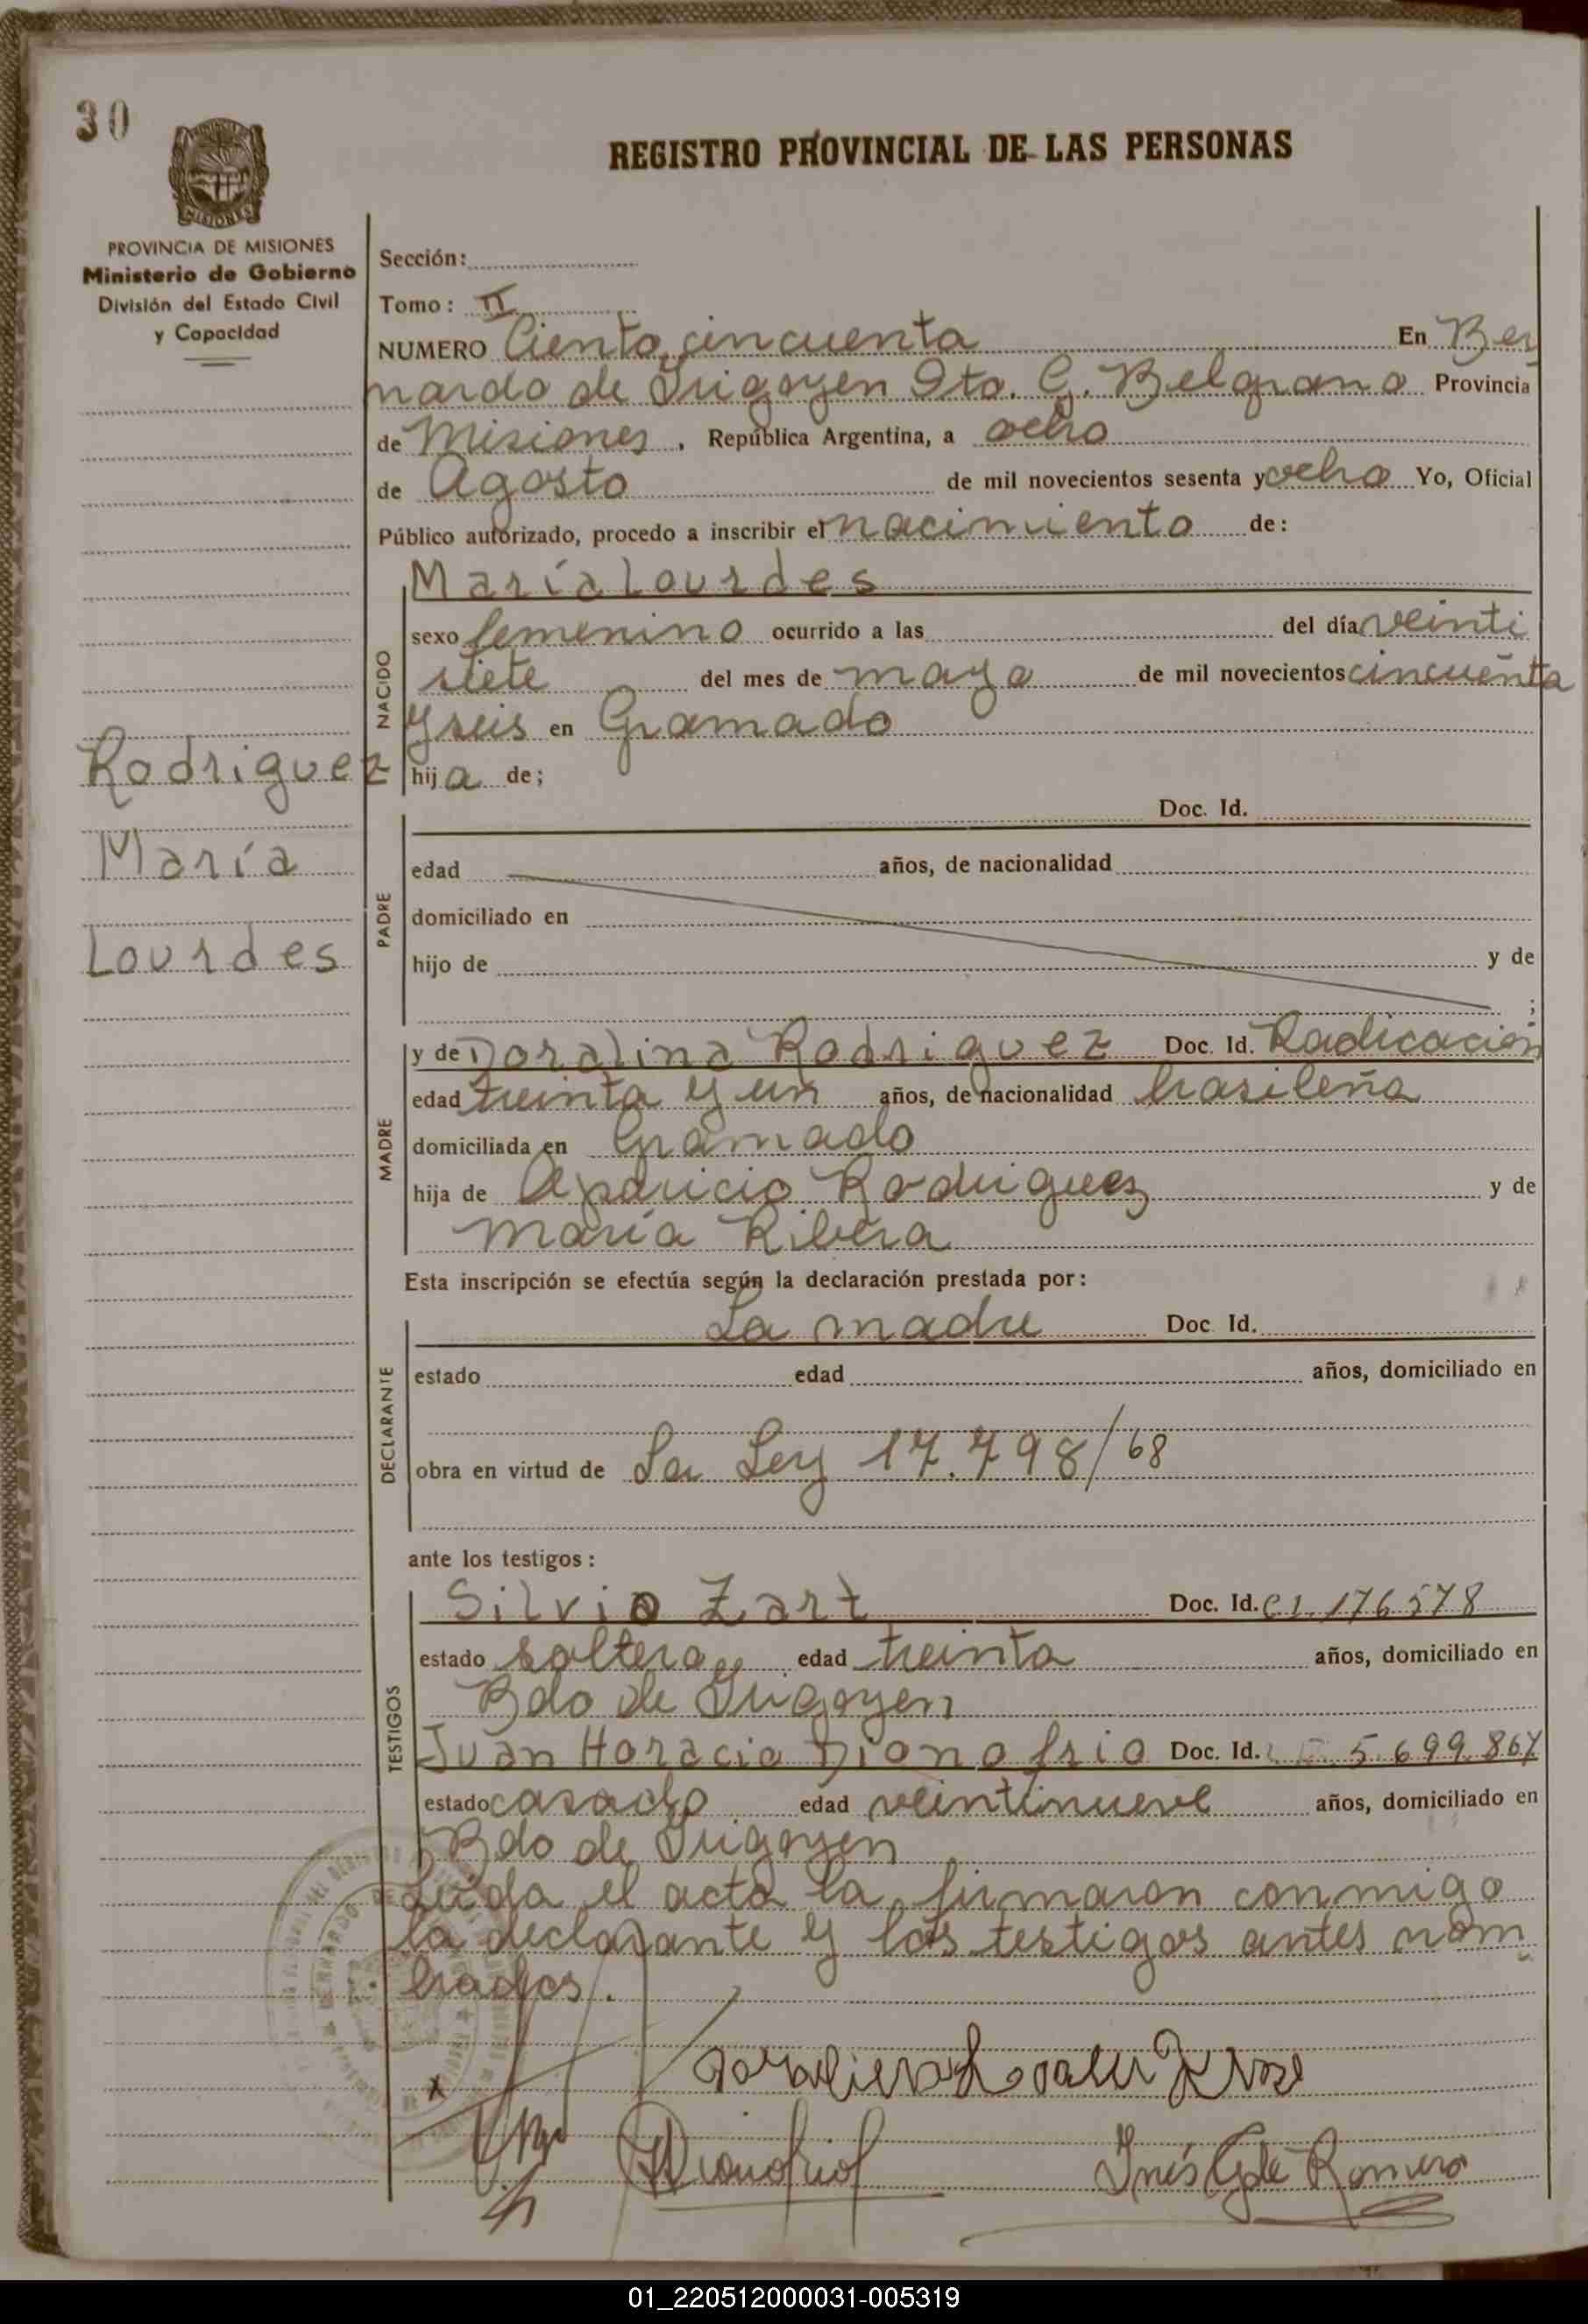 30
REGISTRO PROVINCIAL DE LAS PERSONAS
MISIONES
PROVINCIA DE MISIONES
Ministerio de Gobierno
División del Estado Civil
y Capacidad
Sección:
Tomo: II
NUMERO Ciento cincuenta En Ber
nardo de Irigoyen Dto. G. Belgrano Provincia
de Misiones, República Argentina, a ocho
de Agosto de mil novecientos sesenta y ocho Yo, Oficial
Público autorizado, procedo a inscribir el nacimiento de:
NACIDO
María Lourdes
sexo femenino ocurrido a las del día veinti
siete del mes de mayo de mil novecientos cincuenta
y seis en Gramado
Rodriguez
hija de;
María
Lourdes
PADRE
Doc. Id.
edad años, de nacionalidad
domiciliado en
hijo de y de
;
MADRE
y de Doralina Rodriguez Doc. Id. Radicación
edad treinta y un años, de nacionalidad brasileña
domiciliada en Gramado
hija de Aparicio Rodriguez y de
María Ribera
Esta inscripción se efectúa según la declaración prestada por:
DECLARANTE
La madre Doc Id.
estado edad años, domiciliado en
obra en virtud de La Ley 17.798/68
ante los testigos:
TESTIGOS
Silvio Zart Doc. Id. CI. 176578
estado soltero edad treinta años, domiciliado en
Bdo de Irigoyen
Juan Horacio Dionofrio Doc. Id. 5.699.867
estado casado edad veintinueve años, domiciliado en
Bdo de Irigoyen
Leída el acta la firmaron conmigo
la declarante y los testigos antes nom
brados.
x
Inés G de Romero
01_220512000031-005319